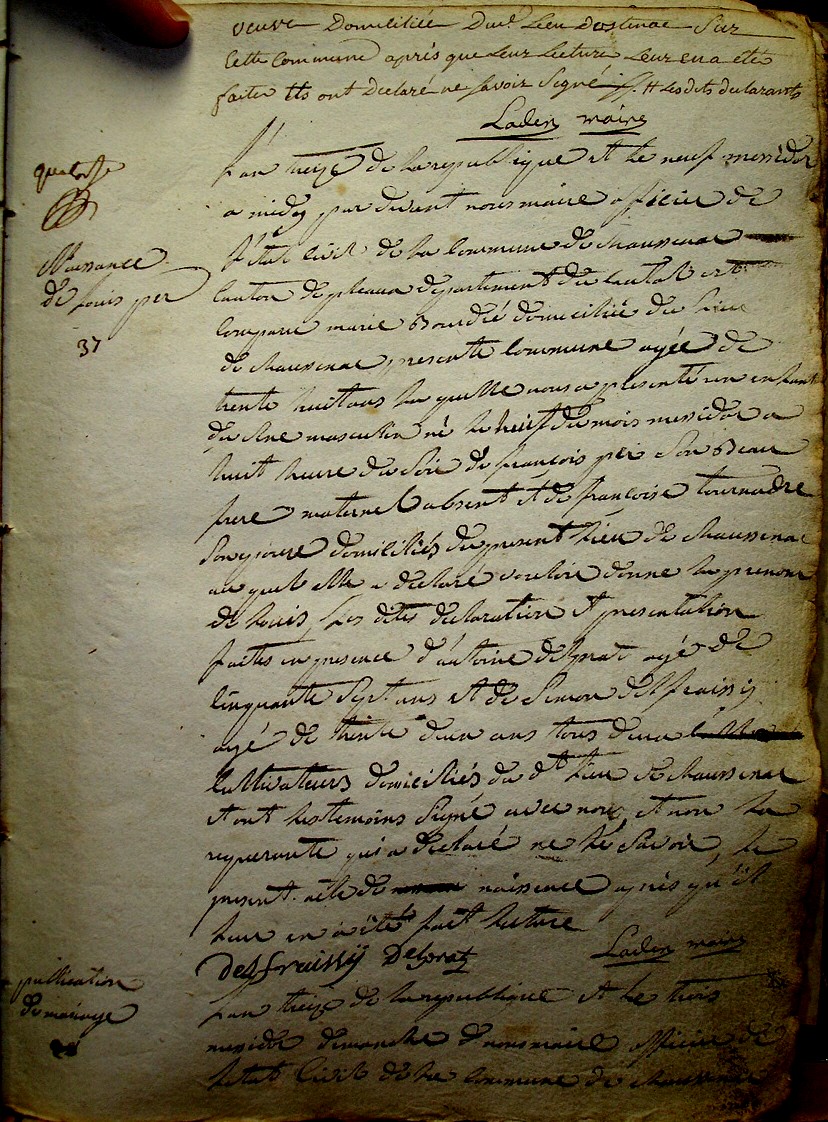 veuve Domiciliée Dud. Lieu Dostenac Sur
Cette Commune après que Leur Lecture Leur en a eté
faite ils ont Declaré ne savoir Signé // # Les dits declarants
Laden maire
quatorze
Naissance
de Louis per
37
l'an treize de la republique et le neuf messidor
a midy par devant nous maire officier de
l'état civil de la commune de Chaussenac
canton de pleaux departement du cantal est
comparu marie Bourdié domiciliée du lieu
de Chaussenac presente commune agée de
trente huit ans la quelle nous a presenté un enfant
du sexe masculin né le huit du mois messidor a
huit heure du soir de françois per son Beau
frere maternel absent et de françoise tournadre
son epouse domiciliés du present lieu de Chaussenac
au quel elle a declaré vouloir donne le prenom
de Louis, Les dites declaration et presentation
faites en presence d'antoine delprat agé de
cinquante sept ans et de Simon delfraissy
agé de trente deux ans tous deux
cultivateurs domiciliés du dt lieu de Chaussenac
et ont les temoins signé avec nous et non la
requerante qui a declaré ne le savoir, le
present acte de naissence apres qu'il
leur en a été fait lecture
delfraissÿ Delprat Laden maire
publication
de mariage
l'an treize de la republique et le trois
messidor dimanche nous maire officier de
l'etat civil de la commune de Chaussenac